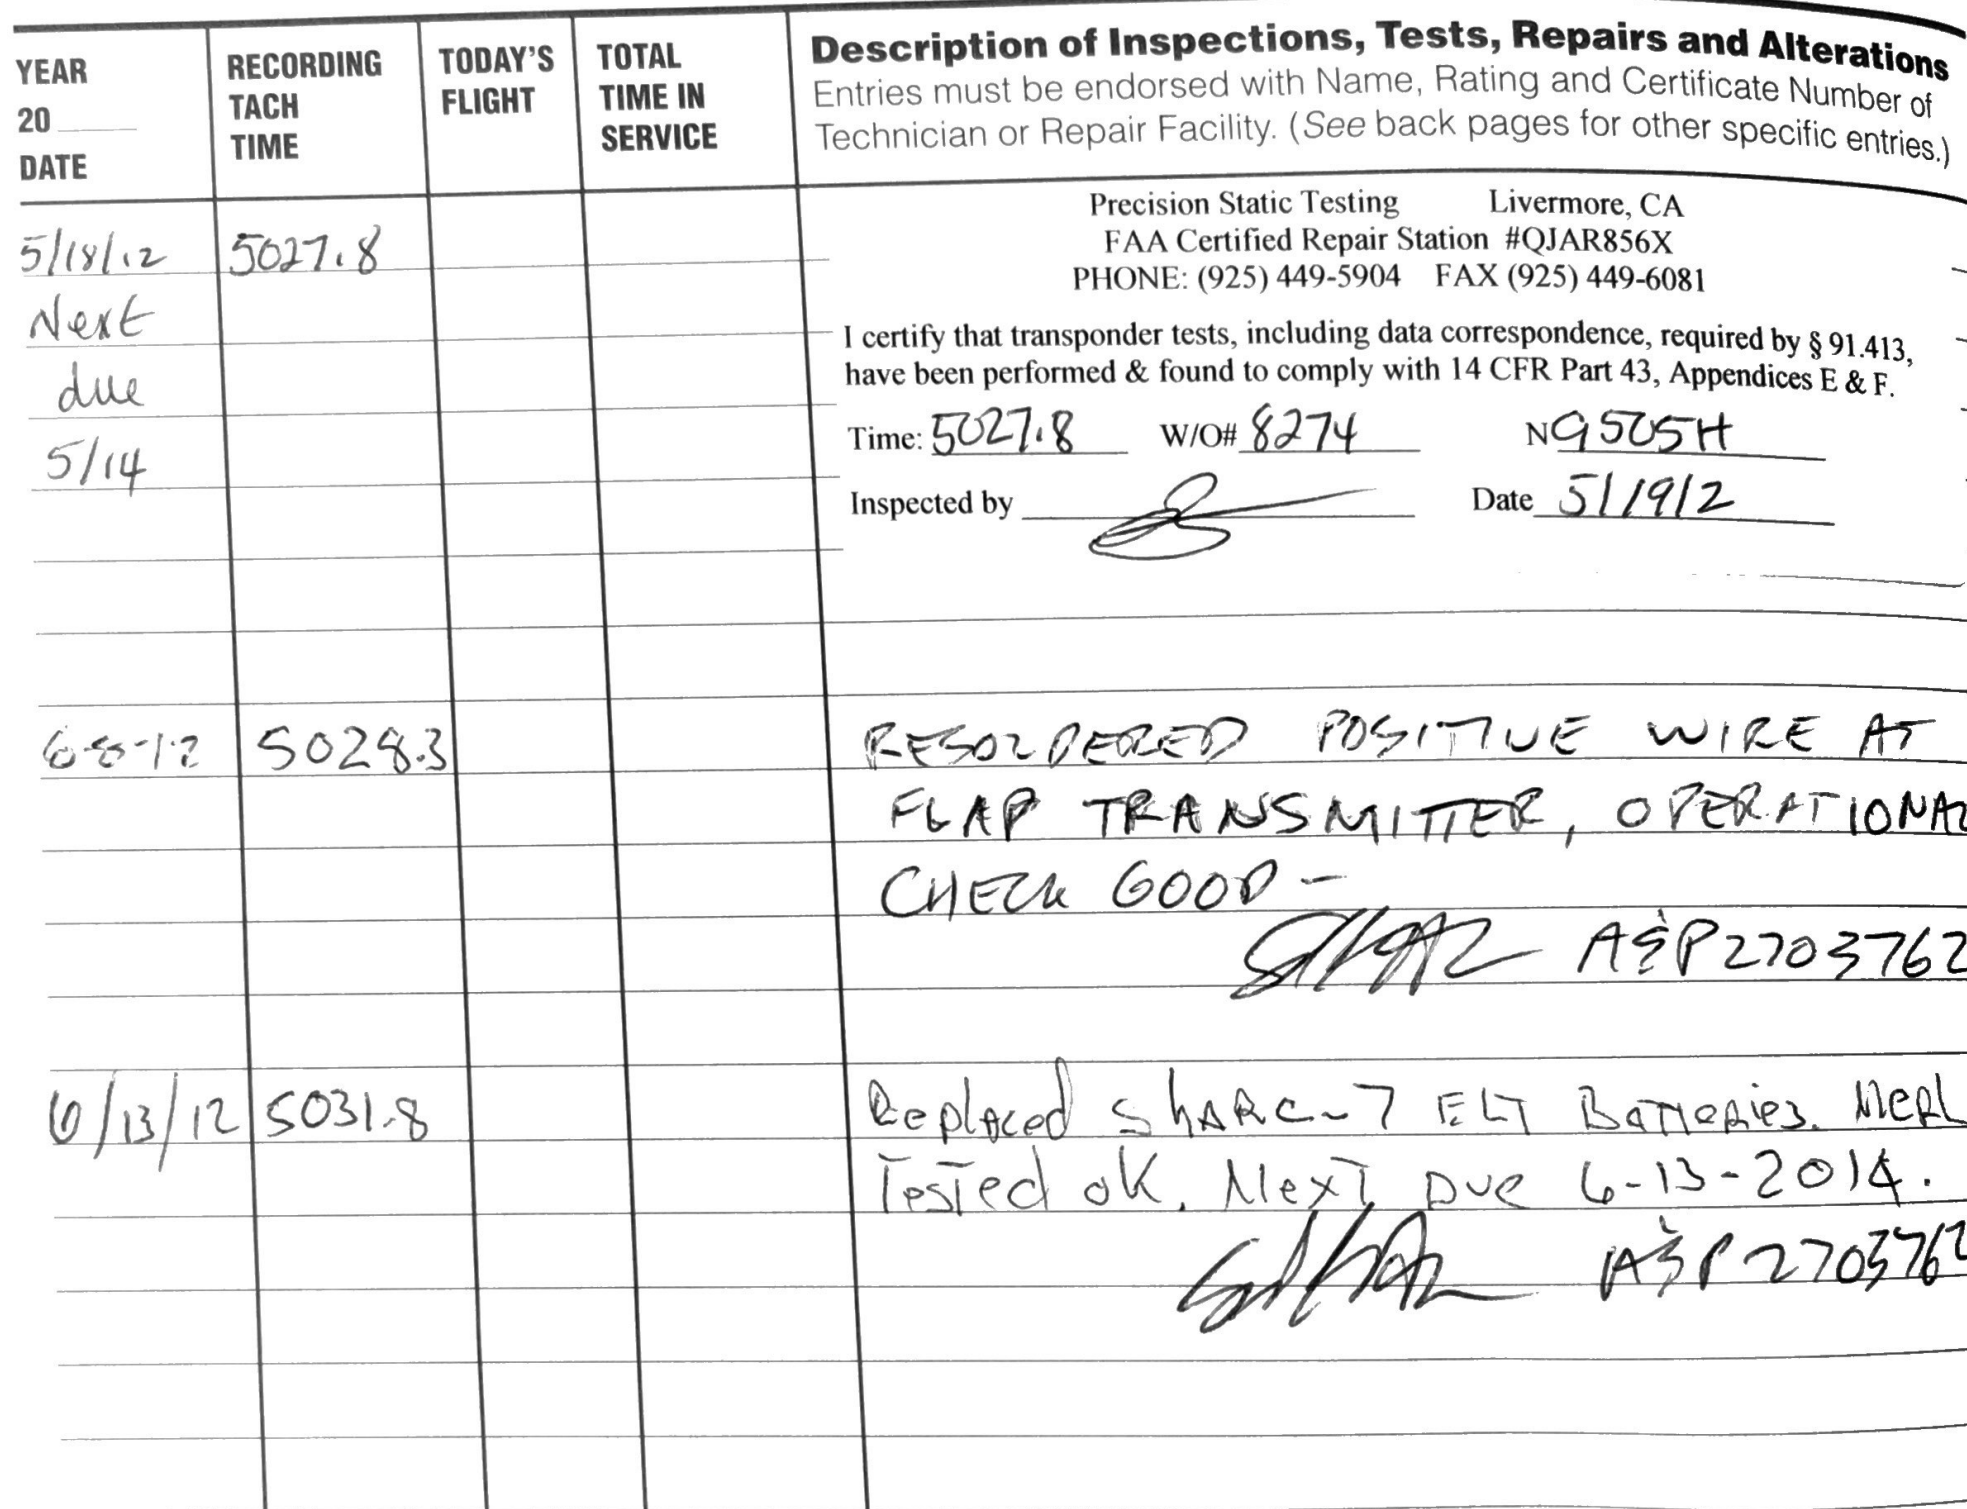 YEAR
20
DATE
RECORDING
TACH
TIME
TODAY'S
FLIGHT
TOTAL
TIME IN
SERVICE
Description of Inspections, Tests, Repairs and Alterations
Entries must be endorsed with Name, Rating and Certificate Number of
Technician or Repair Facility. (See back pages for other specific entries.)
5/18/12 5027.8
Next
due
5/14
Precision Static Testing Livermore, CA
FAA Certified Repair Station #QJAR856X
PHONE: (925) 449-5904 FAX (925) 449-6081
I certify that transponder tests, including data correspondence, required by § 91.413,
have been performed & found to comply with 14 CFR Part 43, Appendices E & F.
Time: 5027.8 W/O# 8274 N9505H
Inspected by Date 5/19/2
6-8-12 5028.3 RESOLDERED POSITIVE WIRE AT
FLAP TRANSMITTER, OPERATIONAL
CHECK GOOD -
A&P 2703762
6/13/12 5031.8 Replaced ShARC-7 ELT BATTeRies.
TesTed oK. NexT Due 6-13-2014.
A&P 2703762